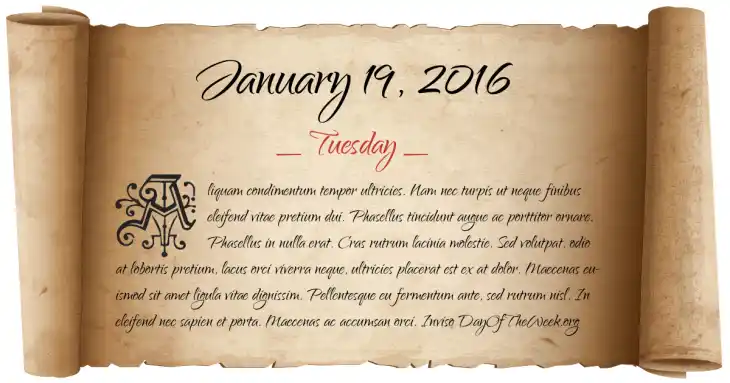 January 19, 2016
_ Tuesday _
Aliquam condimentum tempor ultricies. Nam nec turpis ut neque finibus
eleifend vitae pretium dui. Phasellus tincidunt augue ac porttitor ornare.
Phasellus in nulla erat. Cras rutrum lacinia molestie. Sed volutpat, odio
at lobortis pretium, lacus orci viverra neque, ultricies placerat est ex at dolor. Maecenas eu-
ismod sit amet ligula vitae dignissim. Pellentesque eu fermentum ante, sed rutrum nisl. In
eleifend nec sapien et porta. Maecenas ac accumsan orci. Inviso DayOfTheWeek.org